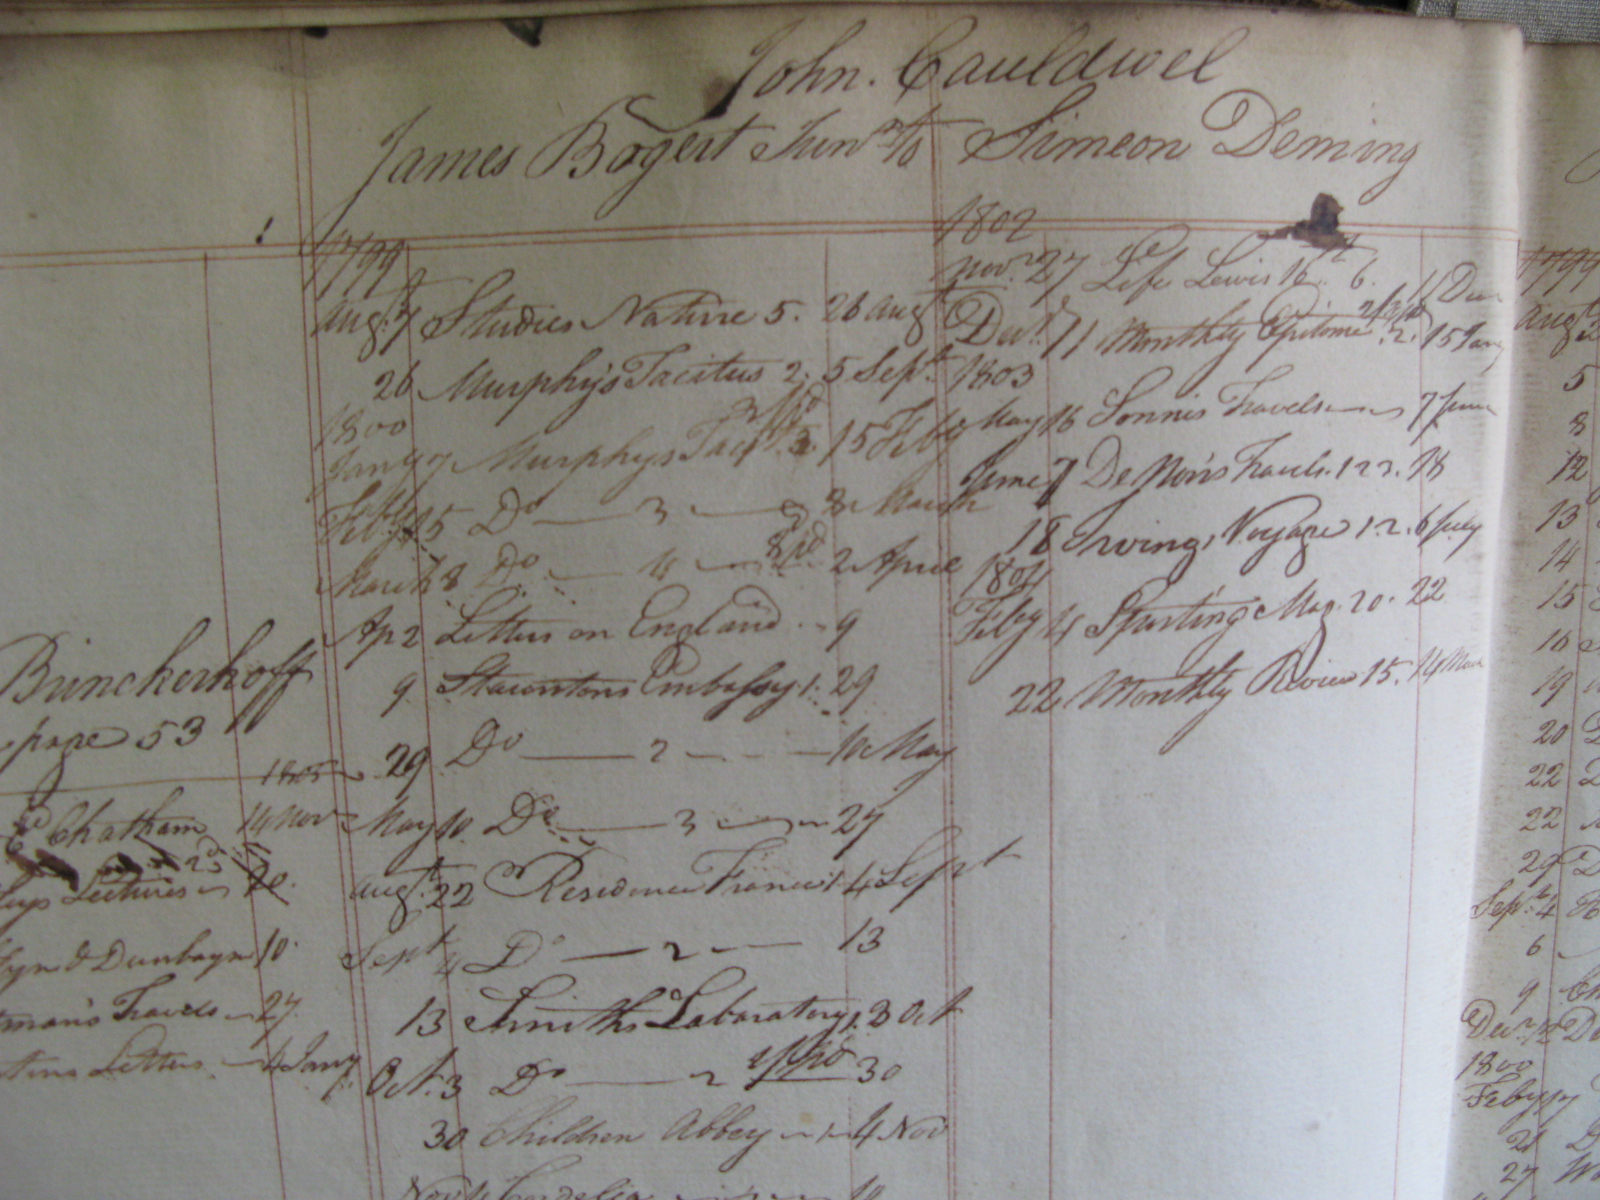 John. Cauldwel
James Bogert Junr to Simeon Deming
Brinckerhoff
page 53
1805
Chatham 14 Nov
Lectures 20.
& Dunbayn 10.
Travels 27
Letters 4 Jany
1799
Augt 7 Studies Nature 5. 26 augt
26 Murphy's Tacitus 2. 5 Sept
1800
Jany 7 Murphys Tact. 3 15 Feby
Feby 15 Do 3 8 March
March 8 Do 4 2 April
Ap 2 Letters on England 9
9 Stauntons Embassy 1. 29
29 Do 2 10 May
May 10 Do 3 27
Augt 22 Residence France 1 4 Sept
Sept 4 Do 2 13
13 Smiths Laboratory 1. 3 Oct
Oct. 3 Do 2 30
30 Children Abbey 1 4 Nov
Cordelia
1802
Novr 27 Life Lewis 16t 6. 11 Decr
Decr 11 Monthly Epitome 2. 15 Jany
1803
May 16 Sonnis Travels 7 June
June 7 De Non's Travels. 1 2 3. 18
18 Irvings Voyage 1.2. 6 July
1804
Feby 4 Sporting Mag. 20. 22
22 Monthly Review 15. 14 Mar
1799
Augt
5
8
12
13
14
15
16
19
20
22
22
29 D
Sept 4
6
9 Ch
Decr 12 Do
1800
Feby
21 D
27